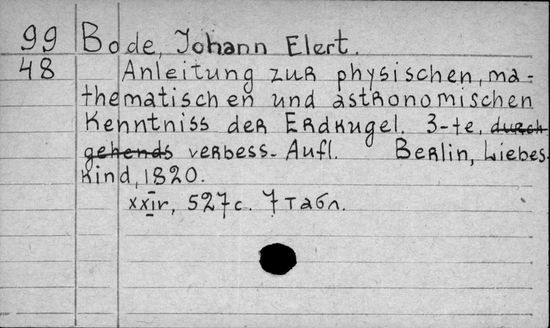 99 Bode, Johann Elert.
48 Anleitung zur physischen, ma-
thematischen und astronomischen
Kenntniss der Erdkugel. 3-te, durch-
gehends verbess. Aufl. Berlin, Liebes-
kind, 1820.
XXIV, 527 с. 7 табл.